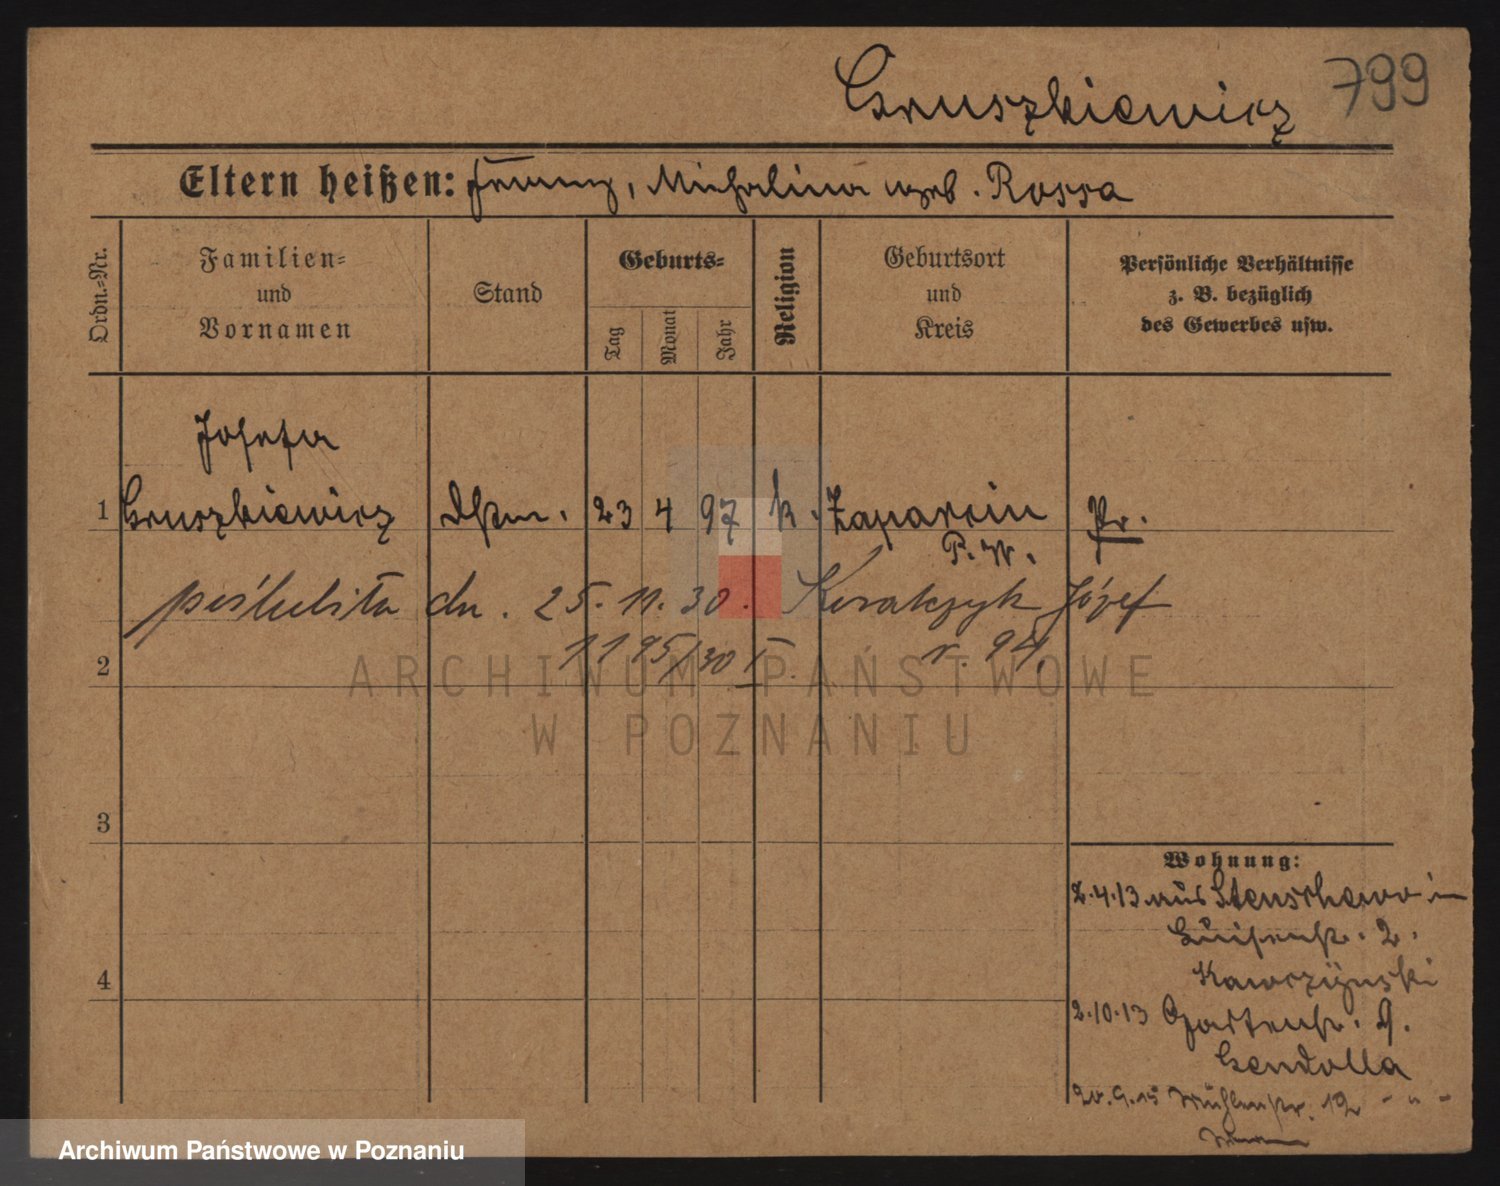 Gruszkiewicz 799
Eltern heißen: Franz, Michalina geb. Rossa
Ordn.-Nr.
Familien-
und
Vornamen
Stand
Geburts-
Tag
Monat
Jahr
Religion
Geburtsort
und
Kreis
Persönliche Verhältnisse
z. B. bezüglich
des Gewerbes usw.
Josefa
1 Gruszkiewicz Dstm. 23 4 97 k. Zaparcin Pr.
P. W.
poślubiła dn. 25. 11. 30. Kovalczyk Józef
1195/30 I. r. 94.
2
3
4
Wohnung:
2.4.13 aus Stenschewo in
Luisenstr. 2.
Kawczyński
2.10.13 Gartenstr. 9.
Gendolla
20.9.15 Mühlenstr. 12 - " -
ARCHIWUM PAŃSTWOWE
W POZNANIU
Archiwum Państwowe w Poznaniu